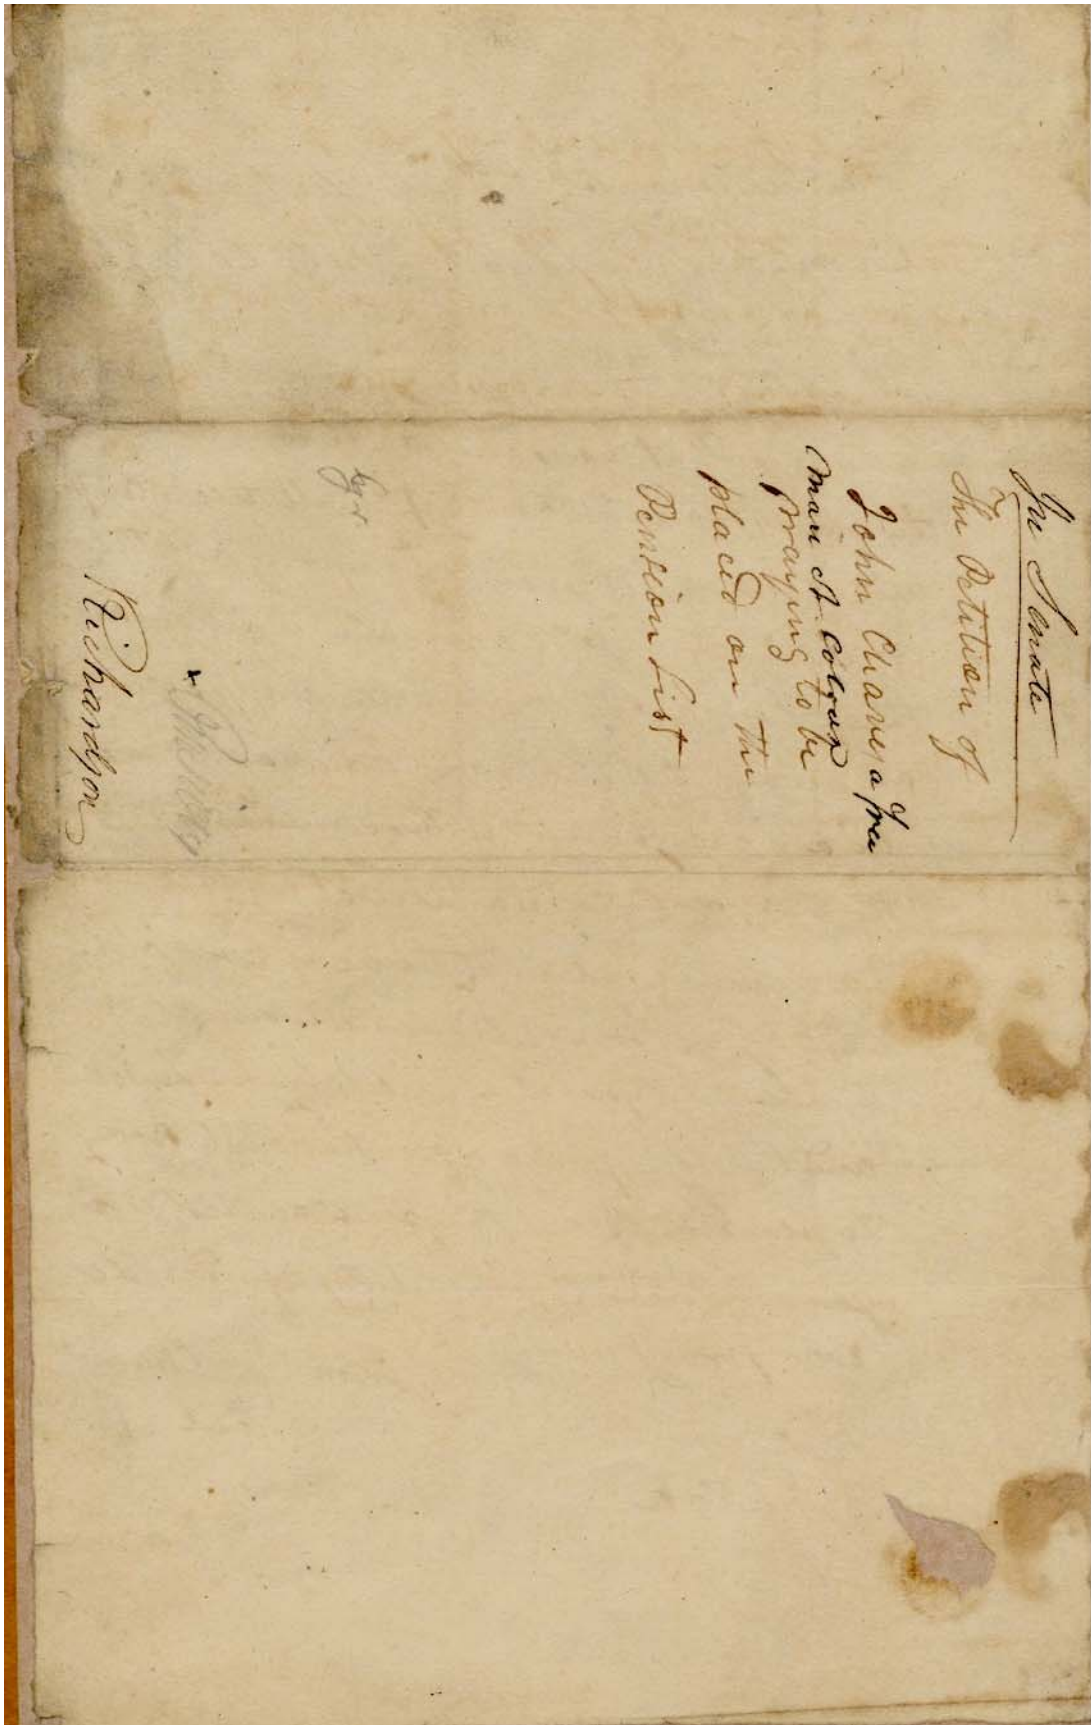 In Senate
The Petition of
John Chaves a free
man of Colour
praying to be
placed on the
Pension List
Richardson